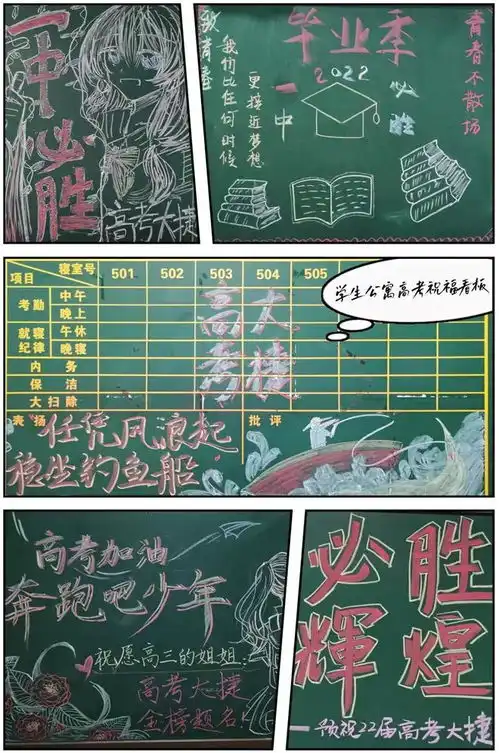 一中必胜
高考大捷
致青春
我们比任何时候
更接近梦想
毕业季
2022
一中
必胜
青春不散场
学生公寓高考祝福看板
项目
寝室号
501
502
503
504
505
考勤
中午
晚上
就寝
纪律
午休
晚寝
内务
保洁
大扫除
高考
大捷
表扬
批评
任凭风浪起
稳坐钓鱼船
高考加油
奔跑吧少年
祝愿高三的姐姐:
高考大捷
金榜题名!
必胜
輝煌
—预祝22届高考大捷